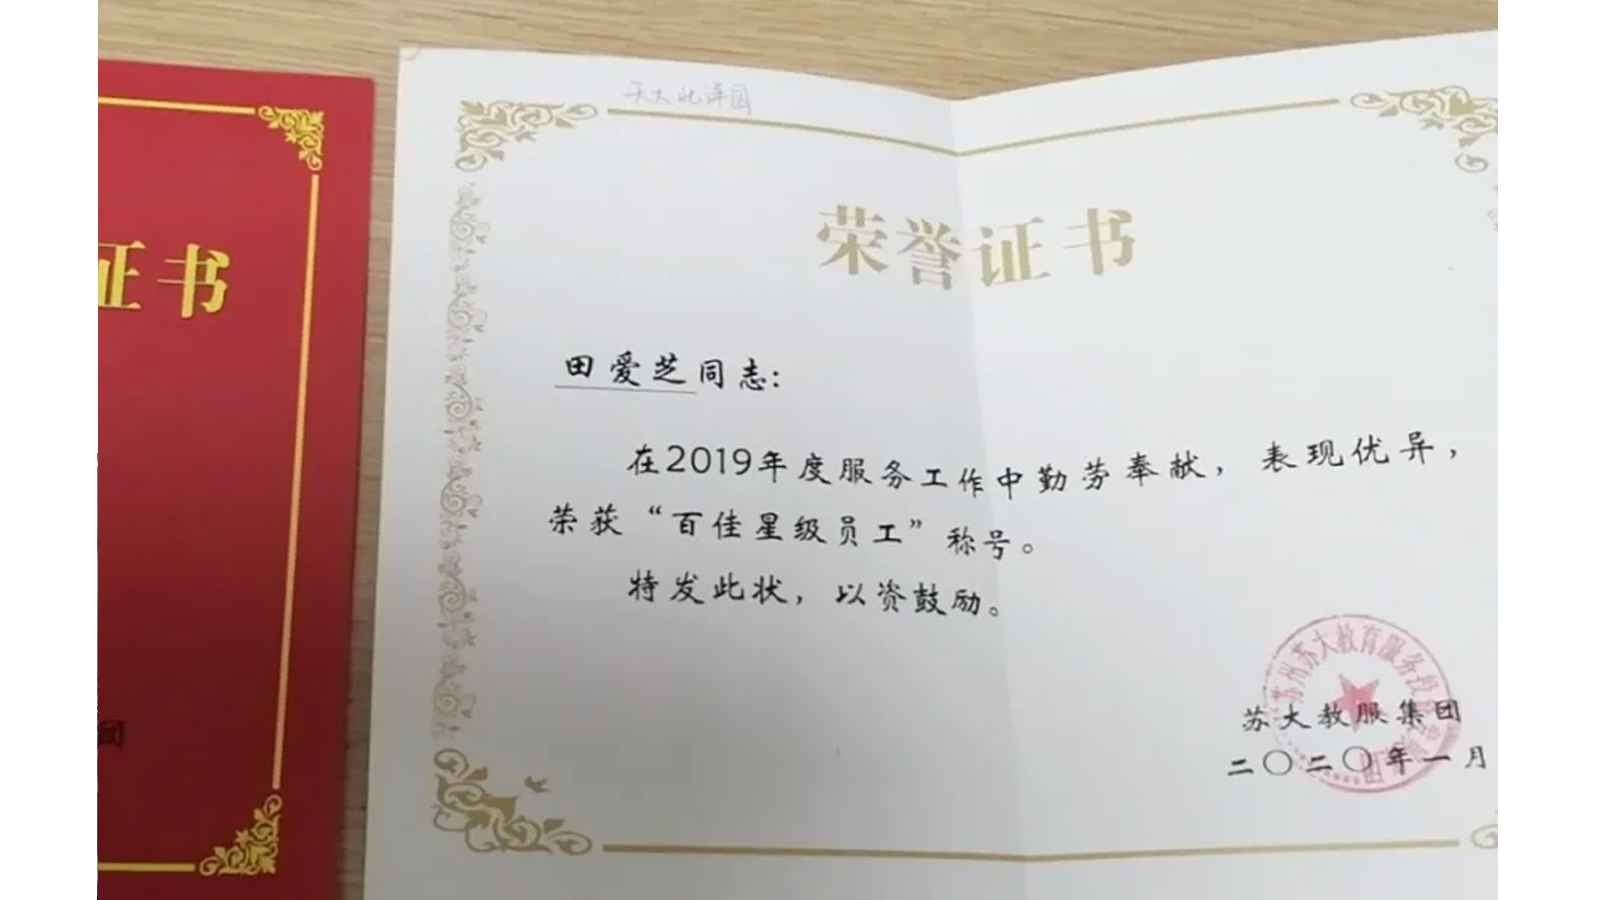 证书
团
荣誉证书
田爱芝同志:
在2019年度服务工作中勤劳奉献，表现优异，
荣获“百佳星级员工”称号。
特发此状，以资鼓励。
苏州苏大教育服务投
苏大教服集团
二〇二〇年一月